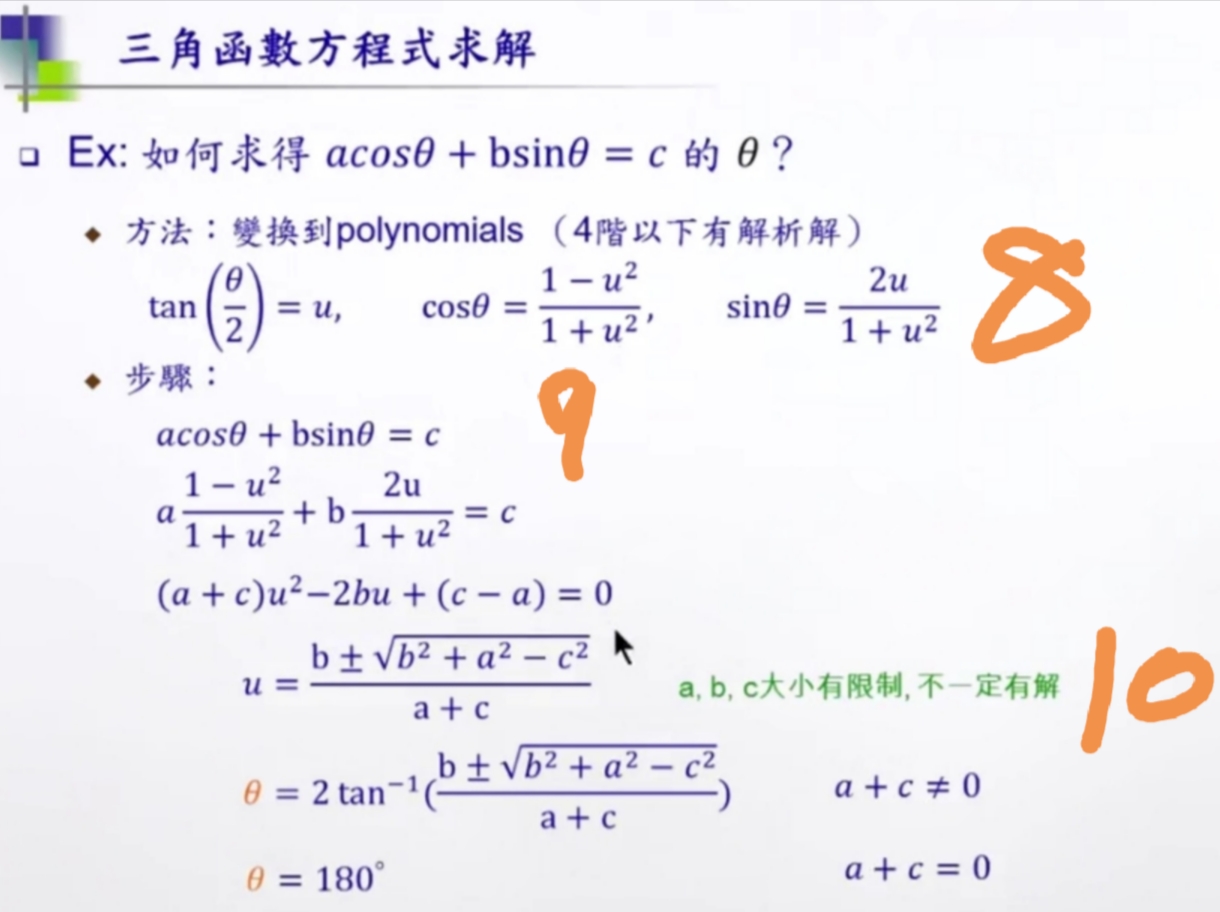 三角函數方程式求解
❑ Ex: 如何求得 acosθ + bsinθ = c 的 θ？
◆ 方法：變換到polynomials （4階以下有解析解）
tan(θ/2) = u, cosθ = (1 − u²)/(1 + u²), sinθ = 2u/(1 + u²) 8
◆ 步驟：
9
acosθ + bsinθ = c
a (1 − u²)/(1 + u²) + b 2u/(1 + u²) = c
(a + c)u²−2bu + (c − a) = 0
u = (b ± √(b² + a² − c²))/(a + c) a, b, c大小有限制, 不一定有解 10
θ = 2 tan⁻¹((b ± √(b² + a² − c²))/(a + c)) a + c ≠ 0
θ = 180° a + c = 0